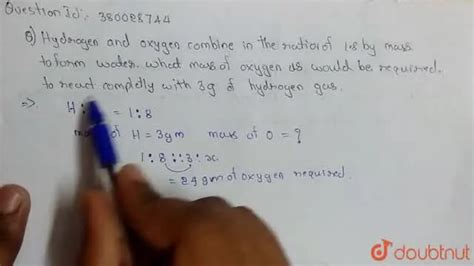 Question Id:- 380028744
Q) Hydrogen and oxygen combine in the ratio of 1:8 by mass
to form water. what mass of oxygen would be required
to react completly with 3g of hydrogen gas.
⇒ H: = 1:8
of H = 3gm mass of O = ?
1:8::3:x
= 24 gm of oxygen required.
doubtnut